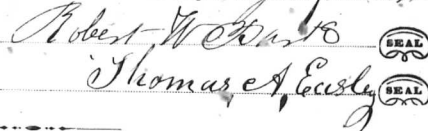 Robert W SEAL
Thomas, A, Easley SEAL